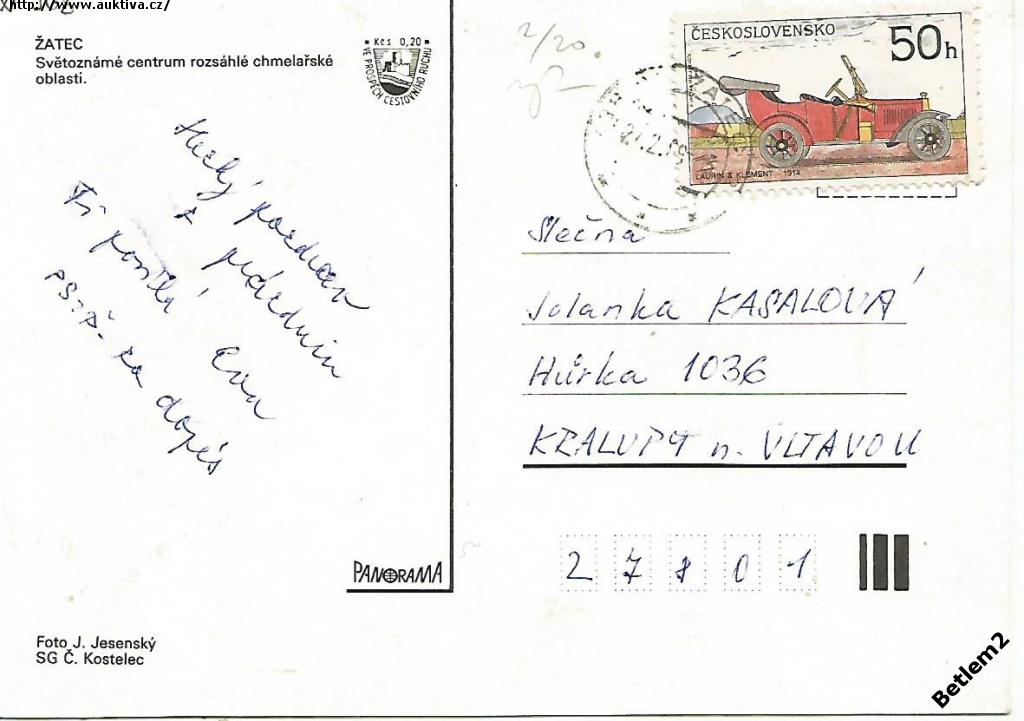 http://www.auktiva.cz/
ŽATEC
Světoznámé centrum rozsáhlé chmelařské
oblasti.
Kčs 0,20
VE PROSPĚCH CESTOVNÍHO RUCHU
2/20.
ČESKOSLOVENSKO
50h
LAURIN & KLEMENT - 1914
Hezký pozdrav
z
Ti posílá Eva
PS: za dopis
Slečna
Jolanka KASALOVÁ
Hůrka 1036
KRALUPY n. VLTAVOU
27801
PANORAMA
Foto J. Jesenský
SG Č. Kostelec
Betlem2